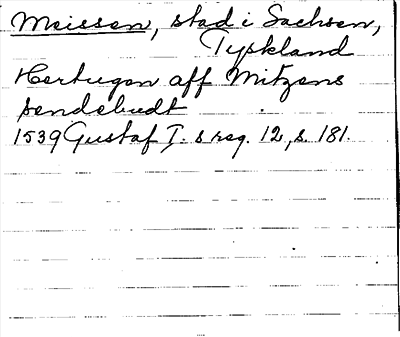 Meissen, stad i Sachsen,
Tyskland
Hertugen aff Mitzens
sendebudt
1539 Gustaf I. s reg. 12, s. 181.